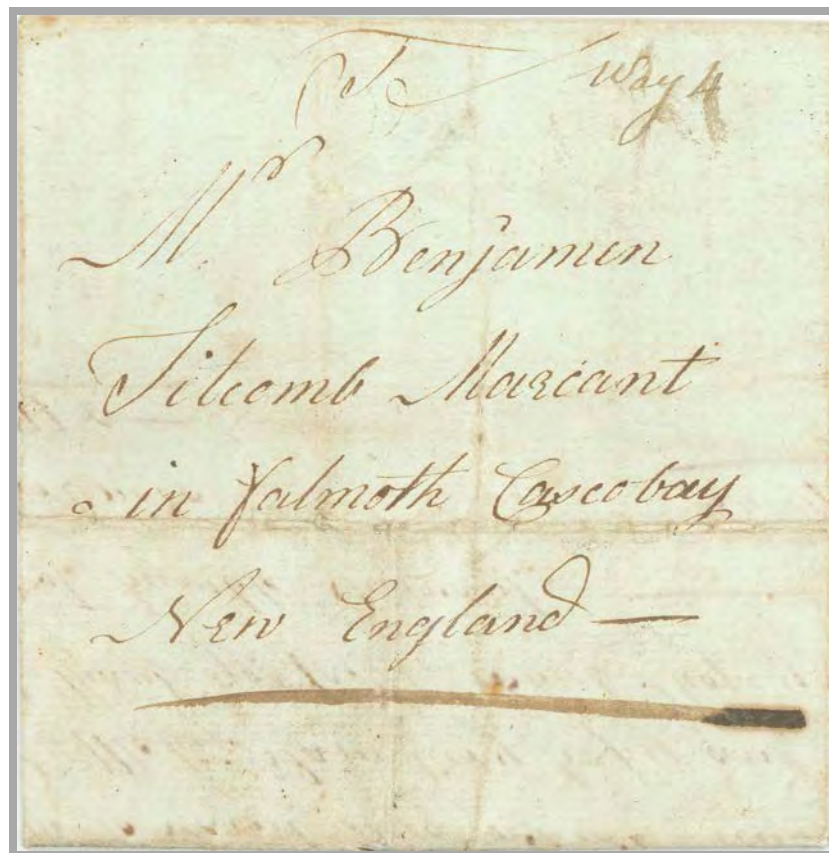 To Way 4
Mr Benjamen
Titcomb Marcant
in falmoth Cascobay
New England —